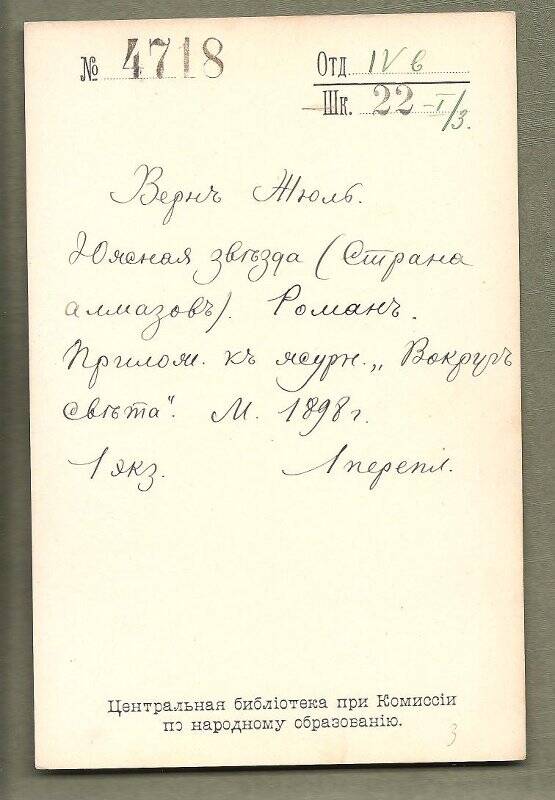 № 4718
Отд. IV в
Шк. 22-I/3.
Вернъ Жюль.
Южная звѣзда (Страна
алмазовъ). Романъ.
Прилож. къ журн. „Вокругъ
свѣта". М. 1898 г.
1 экз. 1 перепл.
Центральная библіотека при Комиссіи
по народному образованію.
3